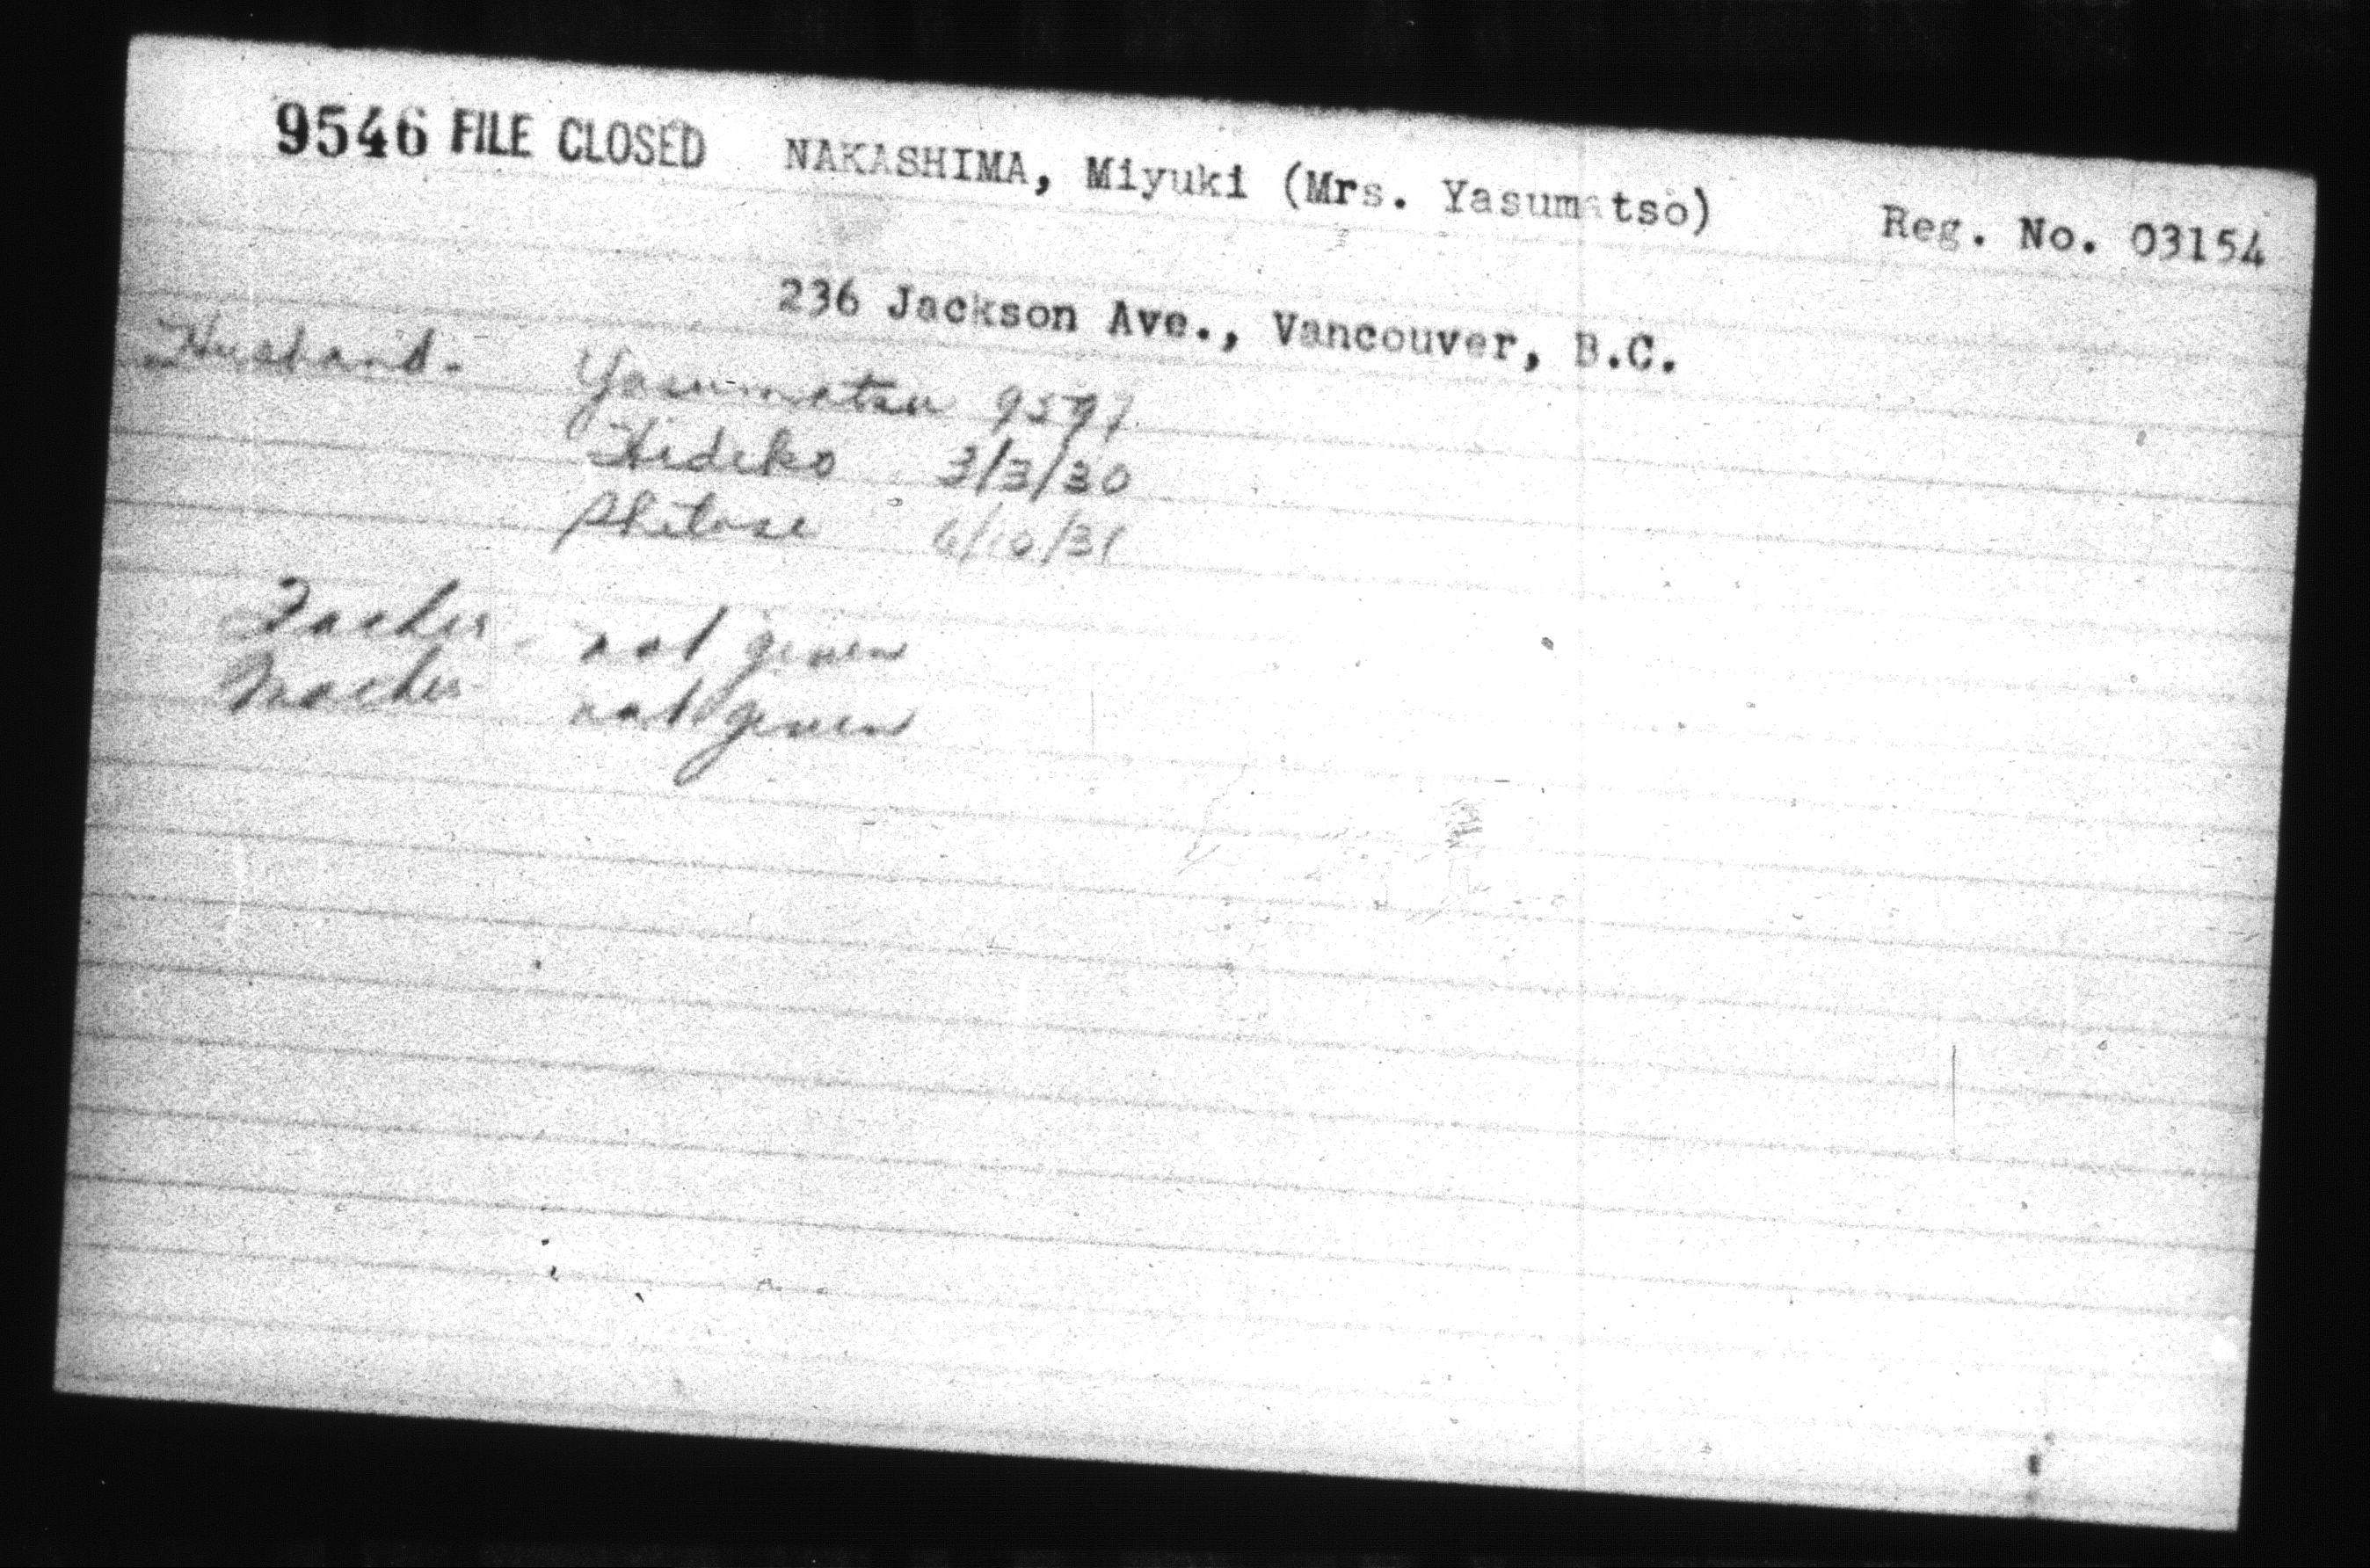 9546 FILE CLOSED NAKASHIMA, Miyuki (Mrs. Yasumatso) Reg. No. 03154
236 Jackson Ave., Vancouver, B.C.
Husband. Yasumatsu 9597
Hideko 3/3/30
Shitose 6/10/31
Father - not given
Mother - not given